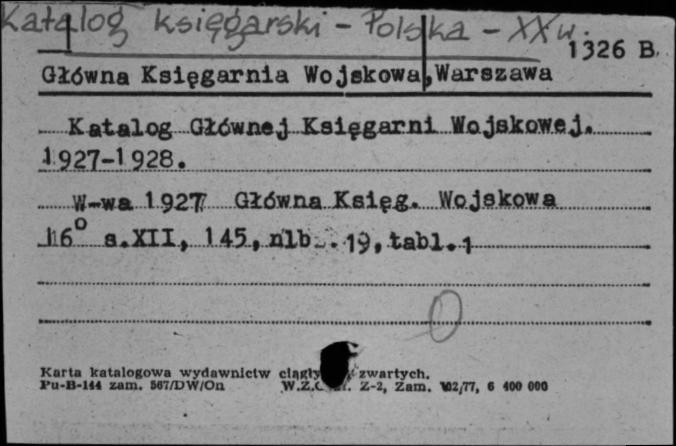 Katalog księgarski - Polska - XX w.
1326 B.
Główna Księgarnia Wojskowa, Warszawa
Katalog Głównej Księgarni Wojskowej.
1927-1928.
W-wa 1927 Główna Księg. Wojskowa
16° s.XII, 145, nlb. 19, tabl. 1
Karta katalogowa wydawnictw zwartych.
Pu-B-144 zam. 567/DW/On W.Z. Z-2, Zam. 102/77, 6 400 000